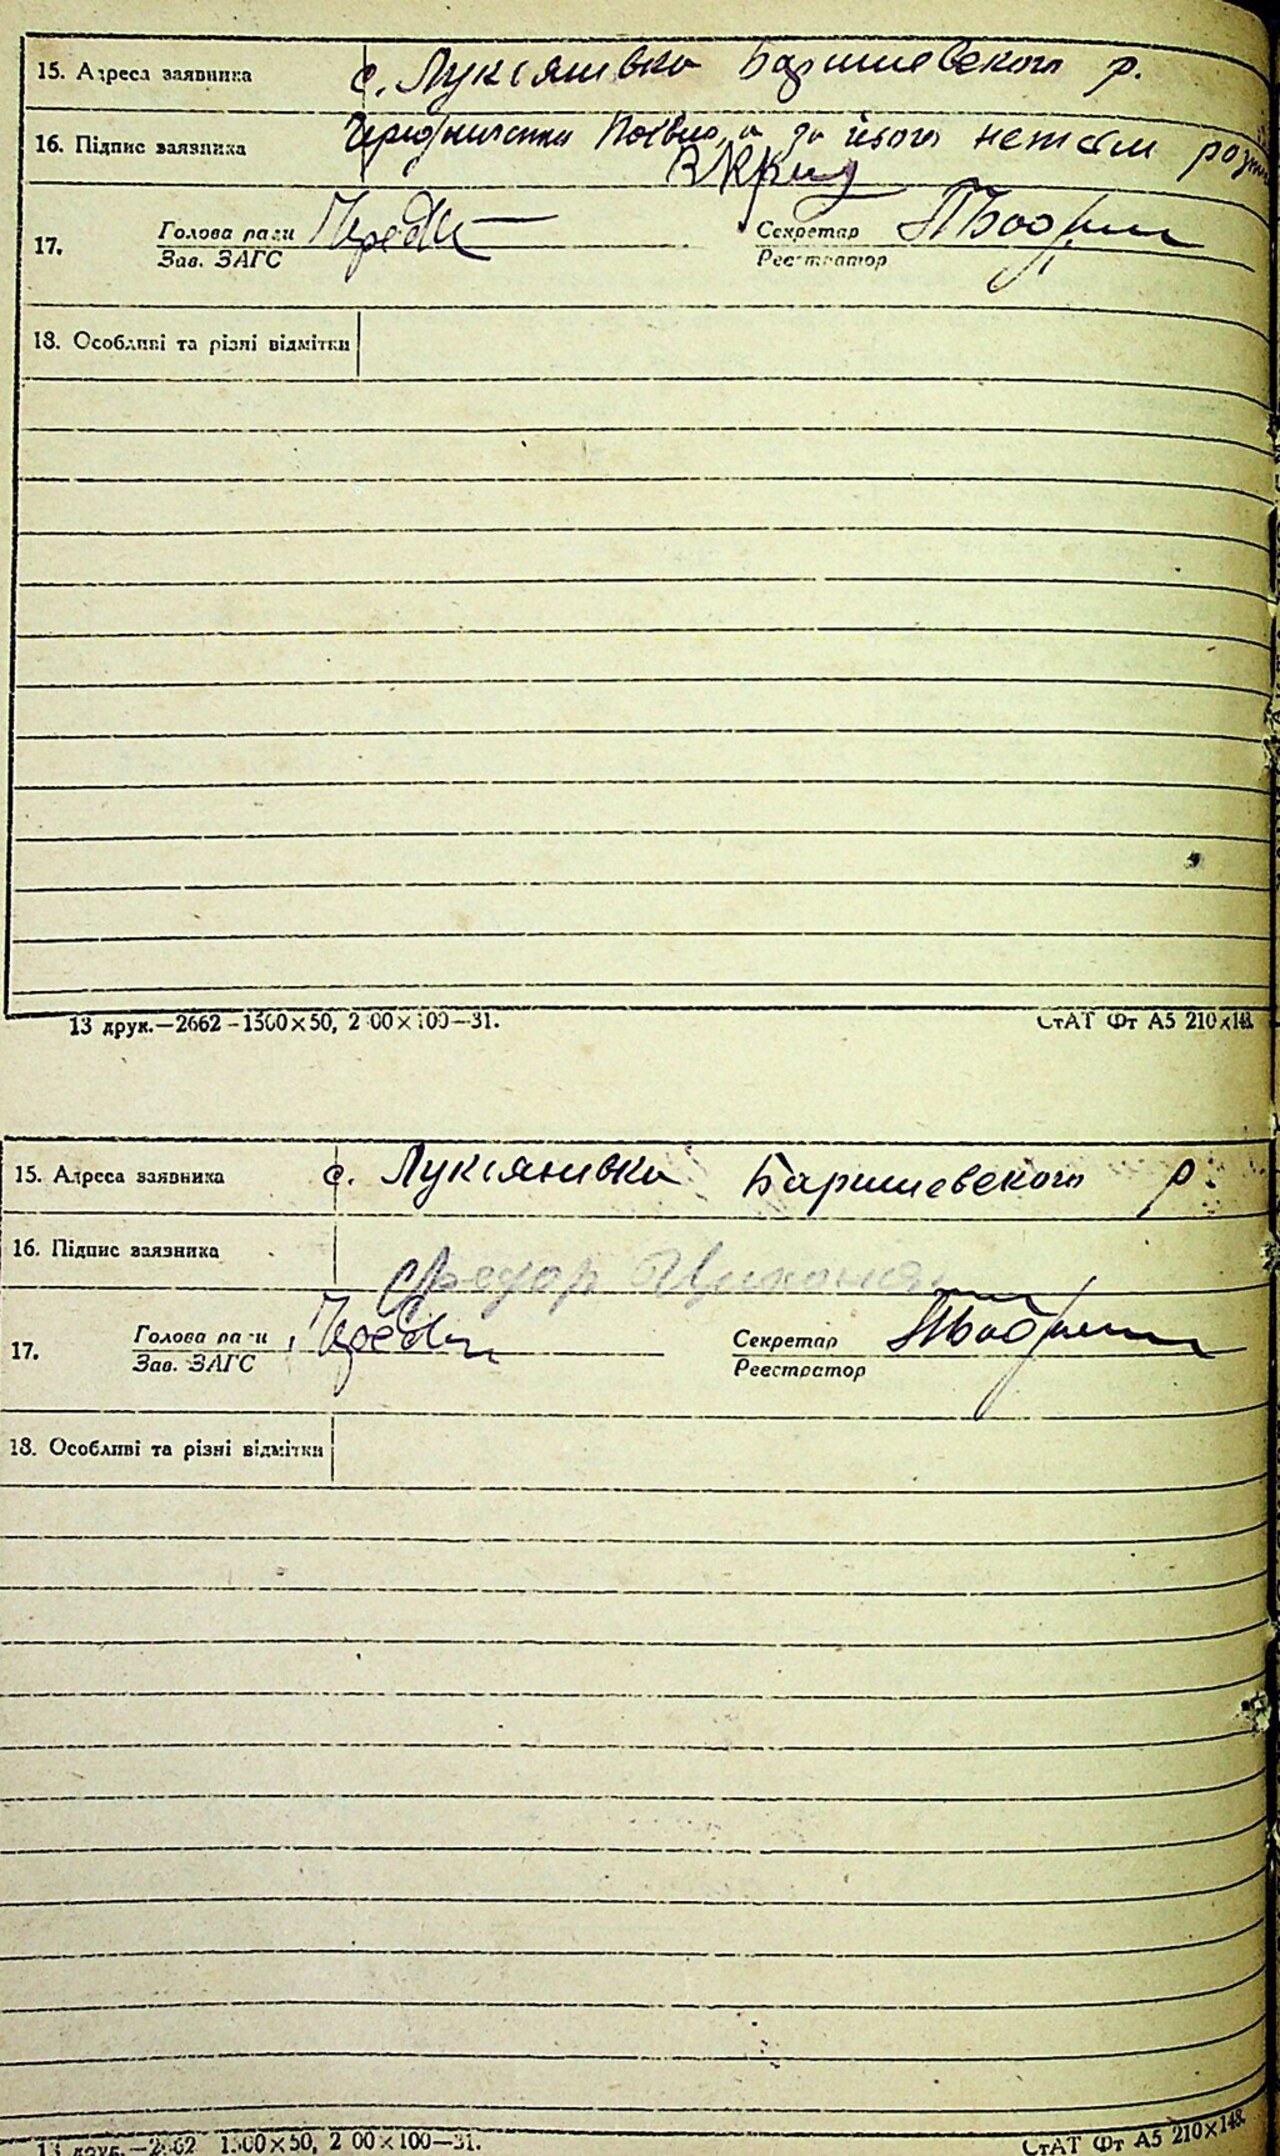 15. Адреса заявника с. Лукіянивка Баришевского р.
16. Підпис заявника а за його
17. Голова ради Секретар
Зав. ЗАГС Реєстратор
18. Особливі та різні відмітки
13 друк.—2662—1500×50, 2 00×100—31. СтАТ Фт А5 210×148.
15. Адреса заявника с. Лукіянивка Баришевского р.
16. Підпис заявника Федор
17. Голова ради Секретар
Зав. ЗАГС Реєстратор
18. Особливі та різні відмітки
13 друк.—2662 1500×50, 2 00×100—31. СтАТ Фт А5 210×148.